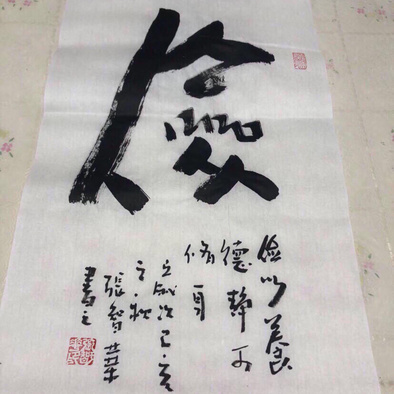 儉
儉以養
德靜可
脩身
歲次己亥
之秋
張智
書之